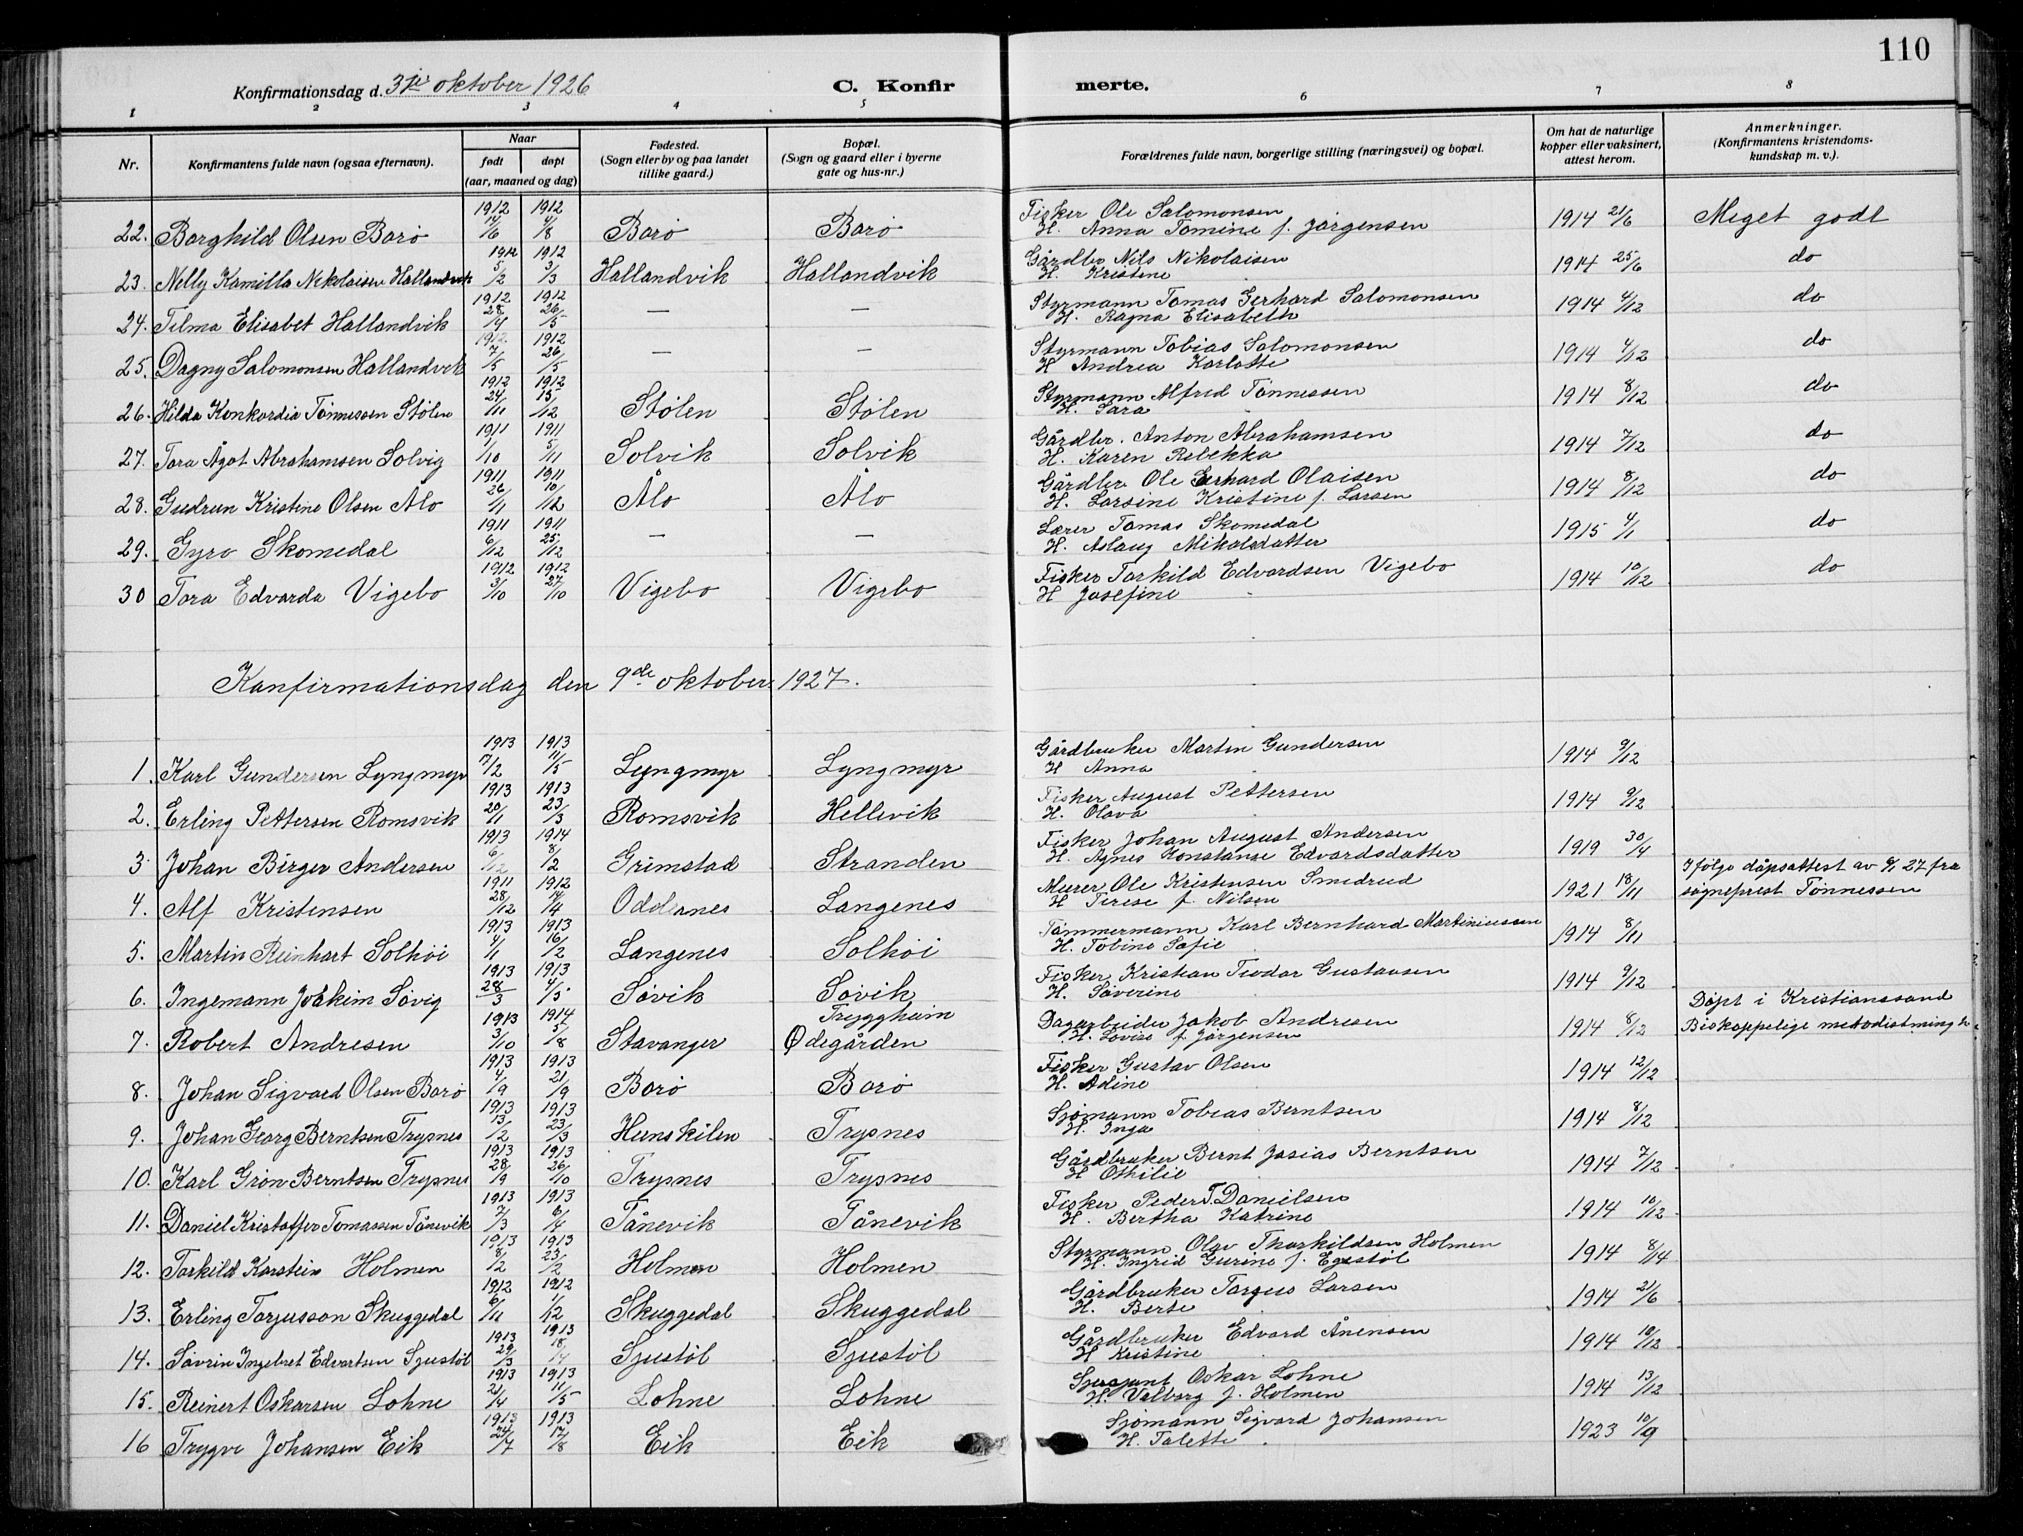 110
Konfirmationsdag d. 3je oktober 1926
C. Konfir merte.
1 2 3 4 5 6 7 8
Nr. Konfirmantens fulde navn (ogsaa efternavn). Naar født døpt (aar, maaned og dag) Fødested. (Sogn eller by og paa landet tillike gaard.) Bopæl. (Sogn og gaard eller i byerne gate og hus-nr.) Forældrenes fulde navn, borgerlige stilling (næringsvei) og bopæl. Om hat de naturlige kopper eller vaksinert, attest herom. Anmerkninger. (Konfirmantens kristendomskundskap m. v.)
22. Borghild Olsen Borø 1912 14/6 1912 4/8 Borø Borø Fisker Ole Salomonsen H. Anna Tomine f. Jørgensen 1914 21/6 Meget godt
23. Nelly Kamilla Nikolaisen Hallandvik 1912 5/2 1912 3/3 Hallandvik Hallandvik Gårdbr Nils Nikolaisen H. Kristene 1914 25/6 do
24. Tilma Elisabet Hallandvik 1912 28/4 1912 26/5 — — Styrmann Tomas Gerhard Salomonsen H. Ragna Elisabeth 1914 4/12 do
25. Dagny Salomonsen Hallandvik 1912 7/5 1912 26/5 — — Styrmann Tobias Salomonsen H Andrea Karlotte 1914 4/12 do
26. Hilda Konkordia Tønnessen Stølen 1912 24/11 1912 15/12 Stølen Stølen Styrmann Alfred Tønnessen H. Sara 1914 8/12 do
27. Tora Ågot Abrahamsen Solvig 1911 1/10 1911 5/11 Solvik Solvik Gårdbr. Anton Abrahamsen H. Karen Rebekka 1914 7/12 do
28. Gudrun Kristine Olsen Ålo 1911 26/11 1911 10/12 Ålo Ålo Gårdbr Ole Gerhard Olaisen H. Larsine Kristine f. Larsen 1914 8/12 do
29. Gyro Skomedal 1911 6/12 1911 25/12 — — Lærer Tomas Skomedal H. Aslaug Mikalsdatter 1915 4/1 do
30 Tora Edvarda Vigebo 1912 3/10 1912 27/10 Vigebo Vigebo Fisker Torkild Edvardsen Vigebo H Josefine 1914 10/12 do
Konfirmationsdag den 9de oktober 1927.
1. Karl Gundersen Lyngmyr 1913 17/2 1913 11/5 Lyngmyr Lyngmyr Gårdbruker Martin Gundersen H Anna 1914 9/12
2. Erling Pettersen Romsvik 1913 20/1 1913 23/3 Romsvik Hellevik Fisker August Pettersen H. Olava 1914 9/12
3 Johan Birger Andersen 1913 6/12 1914 8/2 Grimstad Stranden Fisker Johan August Andersen H. Agnes Konstanse Edvardsdatter 1919 30/4
4. Alf Kristensen 1911 28/12 1912 14/4 Oddernes Langenes Murer Ole Kristensen Smedrud H Terese f. Nilsen 1921 18/11 Ifølge dåpsattest av 27 fra sogneprest Tønnessen
5. Martin Reinhart Solhöi 1913 4/1 1913 16/2 Langenes Solhöi Tømmermann Karl Bernhard Martiniussen H. Tobine Sofie 1914 8/11
6. Ingemann Joakim Søvig 1913 28/3 1913 4/5 Søvik Søvik Fisker Kristian Teodor Gustavsen H. Søverine 1914 9/12
7. Robert Andresen 1913 3/10 1914 5/8 Stavanger Tryggheim Ødegården Dagarbeider Jakob Andresen H. Lovise f. Jørgensen 1914 8/12 Døpt i Kristianssand Biskoppelige metodistmingh
8. Johan Sigvard Olsen Borø 1913 4/9 1913 21/9 Borø Borø Fisker Gustav Olsen H. Adine 1914 12/12
9. Johan Georg Berntsen Trysnes 1913 13/2 1913 23/3 Hunskilen Trysnes Sjømann Tobias Berntsen H. Inga 1914 8/12
10. Karl Grøn Berntsen Trysnes 1913 28/9 1913 26/10 Trysnes Trysnes Gårdbruker Bernt Josias Berntsen H Othilie 1914 7/12
11. Daniel Kristoffer Tomassen Tånevik 1913 7/3 1913 6/4 Tånevik Tånevik Fisker Peder T. Danielsen H. Bertha Katrine 1914 10/12
12. Torkild Karstein Holmen 1913 8/2 1913 23/2 Holmen Holmen Styrmann Olav Thorkildsen Holmen H. Ingrid Gurine f. Egestøl 1914 8/14
13. Erling Torjusson Skuggedal 1912 6/11 1912 1/12 Skuggedal Skuggedal Gårdbruker Torgus Larsen H. Berte 1914 21/6
14. Søvrin Ingebret Edvartsen Sjustøl 1913 29/3 1913 18/4 Sjustøl Sjustøl Gårdbruker Edvard Ånensen H Kristine 1914 10/12
15. Reinert Oskarsen Lohne 1913 21/4 1913 11/5 Lohne Lohne Sersjant Oskar Lohne H. Valborg f. Holmen 1914 13/12
16 Trygve Johansen Eik 1913 24/7 1913 17/8 Eik Eik Sjømann Sigvard Johansen H. Talette 1923 10/9